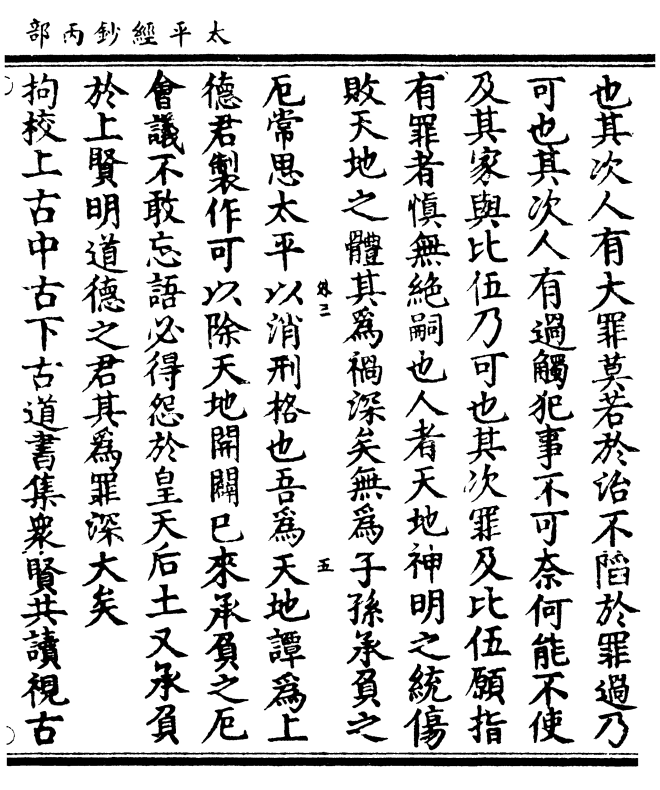 太平經鈔丙部
也其次人有大罪莫若於治不䧟於罪過乃
可也其次人有過觸犯事不可奈何能不使
及其家與比伍乃可也其次罪及比伍願指
有罪者慎無絕嗣也人者天地神明之統傷
敗天地之體其為禍深矣無為子孫承負之
外三
五
厄常思太平以消刑格也吾為天地譚為上
德君製作可以除天地開闢已來承負之厄
會議不敢忘語必得怨於皇天后土又承負
於上賢明道德之君其為罪深大矣
拘校上古中古下古道書集衆賢共讀視古